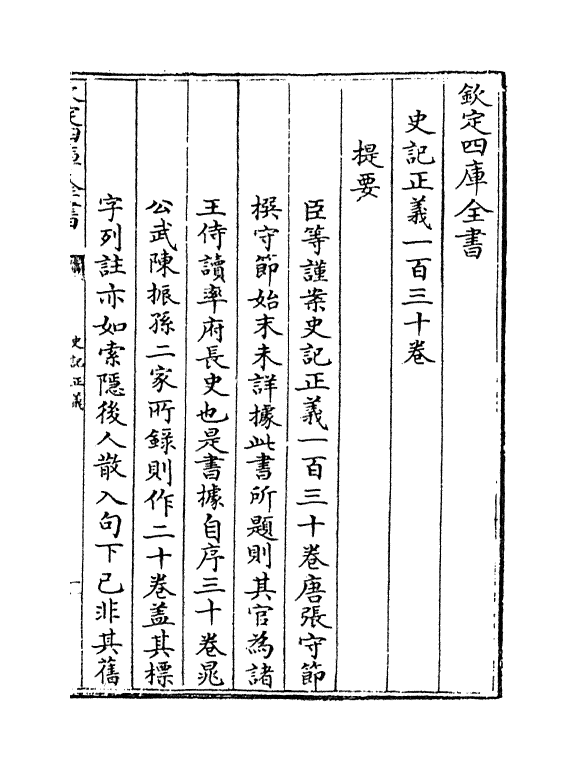 欽定四庫全書
史記正義一百三十卷
提要
臣等謹案史記正義一百三十卷唐張守節
撰守節始末未詳據此書所題則其官為諸
王侍讀率府長史也是書據自序三十卷晁
公武陳振孫二家所錄則作二十卷蓋其標
字列註亦如索隱後人散入句下已非其舊
欽定四庫全書
史記正義
一